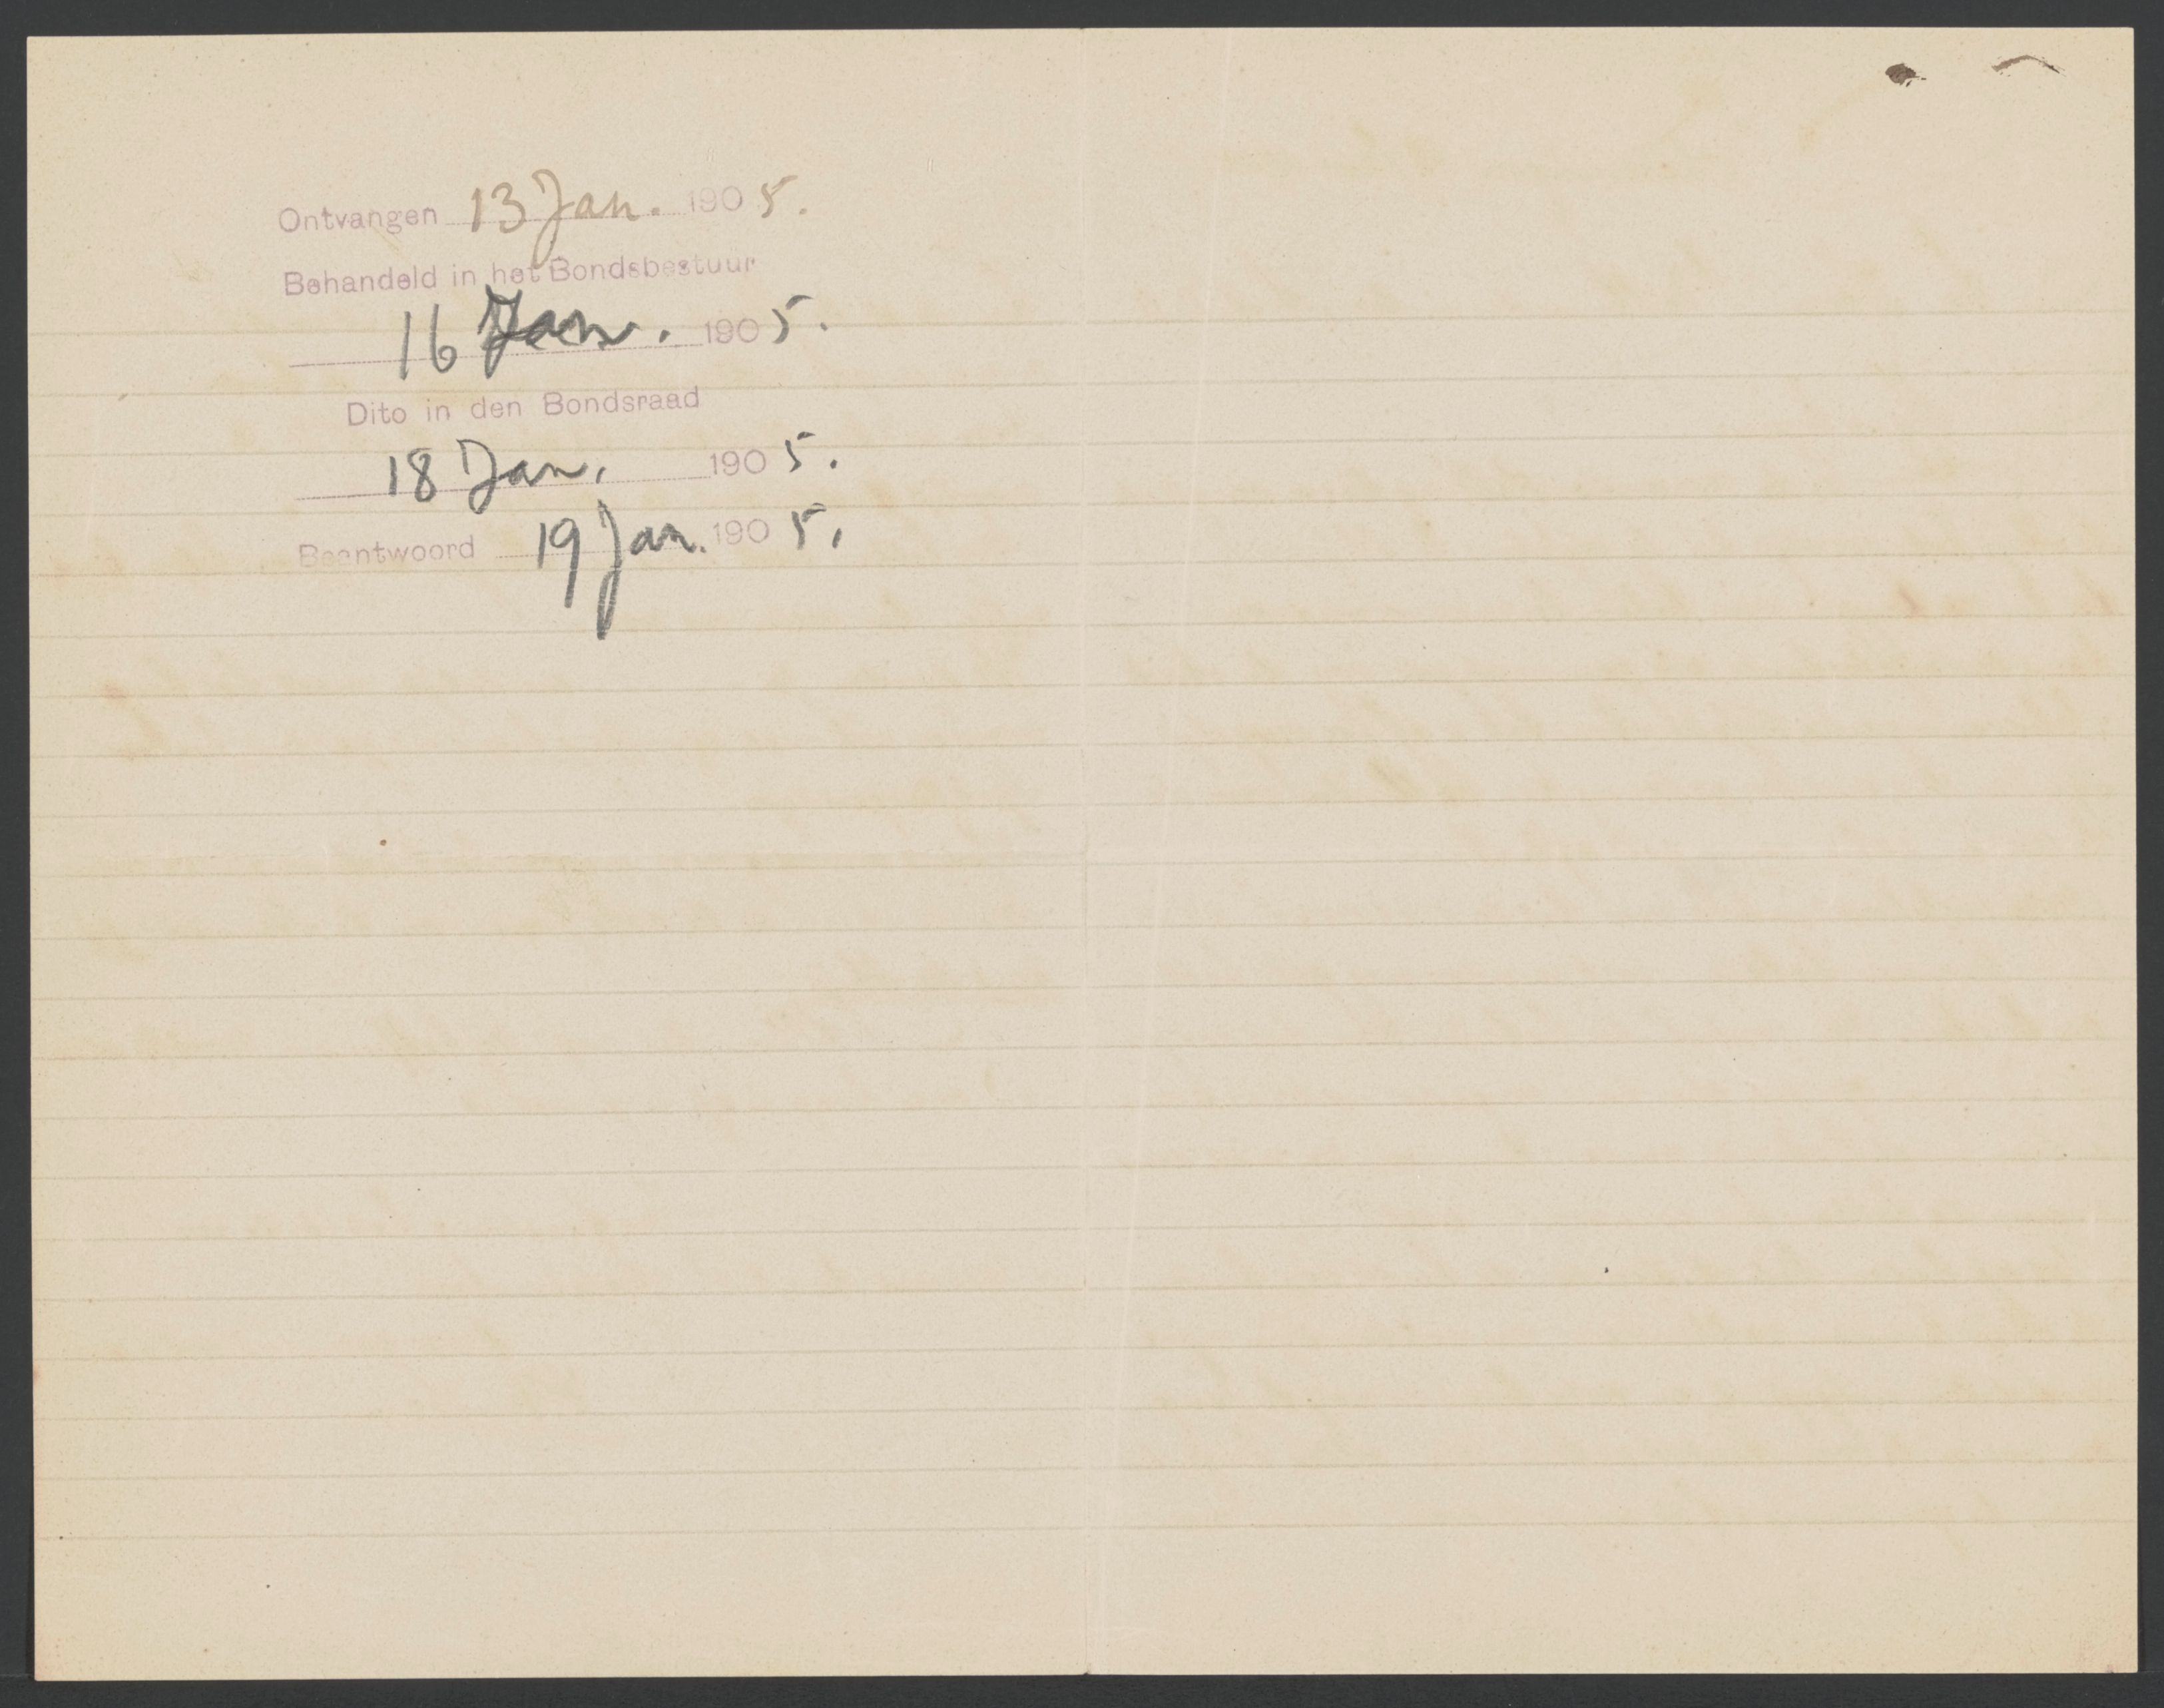 Ontvangen 13 Jan. 1905.
Behandeld in het Bondsbestuur
16 Jan. 1905.
Dito in den Bondsraad
18 Jan. 1905.
Beantwoord 19 Jan. 1905.